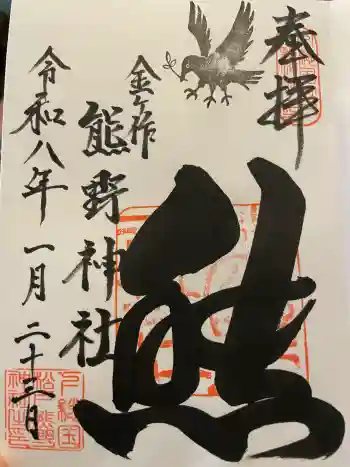 奉拝
熊
金ヶ作
熊野神社
令和八年一月二十三日